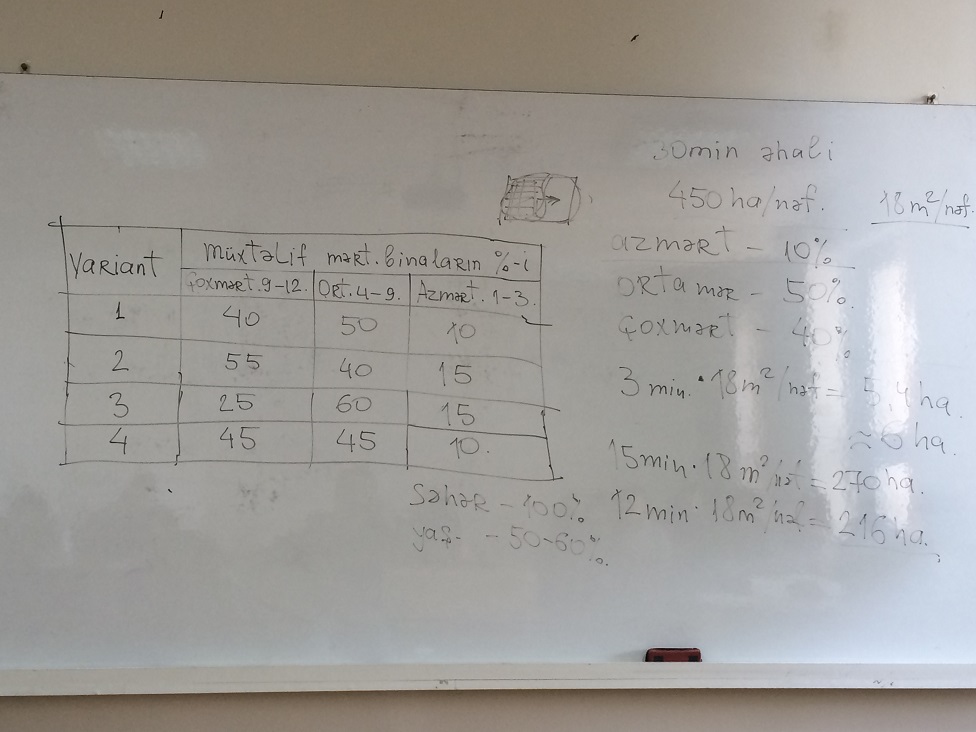 Variant
müxtəlif mərt. binaların %-i
Çoxmərt. 9-12. Ort. 4-9. Azmərt. 1-3.
1 40 50 10
2 55 40 15
3 25 60 15
4 45 45 10.
Şəhər - 100%
yaş. - 50-60%.
30min əhali
450 ha/nəf. 18m²/nəf.
azmərt - 10%
orta mər - 50%.
Çoxmərt - 40%
3 min. 18m²/nəf = 5,4 ha.
≈ 6 ha.
15min. 18m²/nəf = 270 ha.
12min. 18m²/nəf = 216 ha.